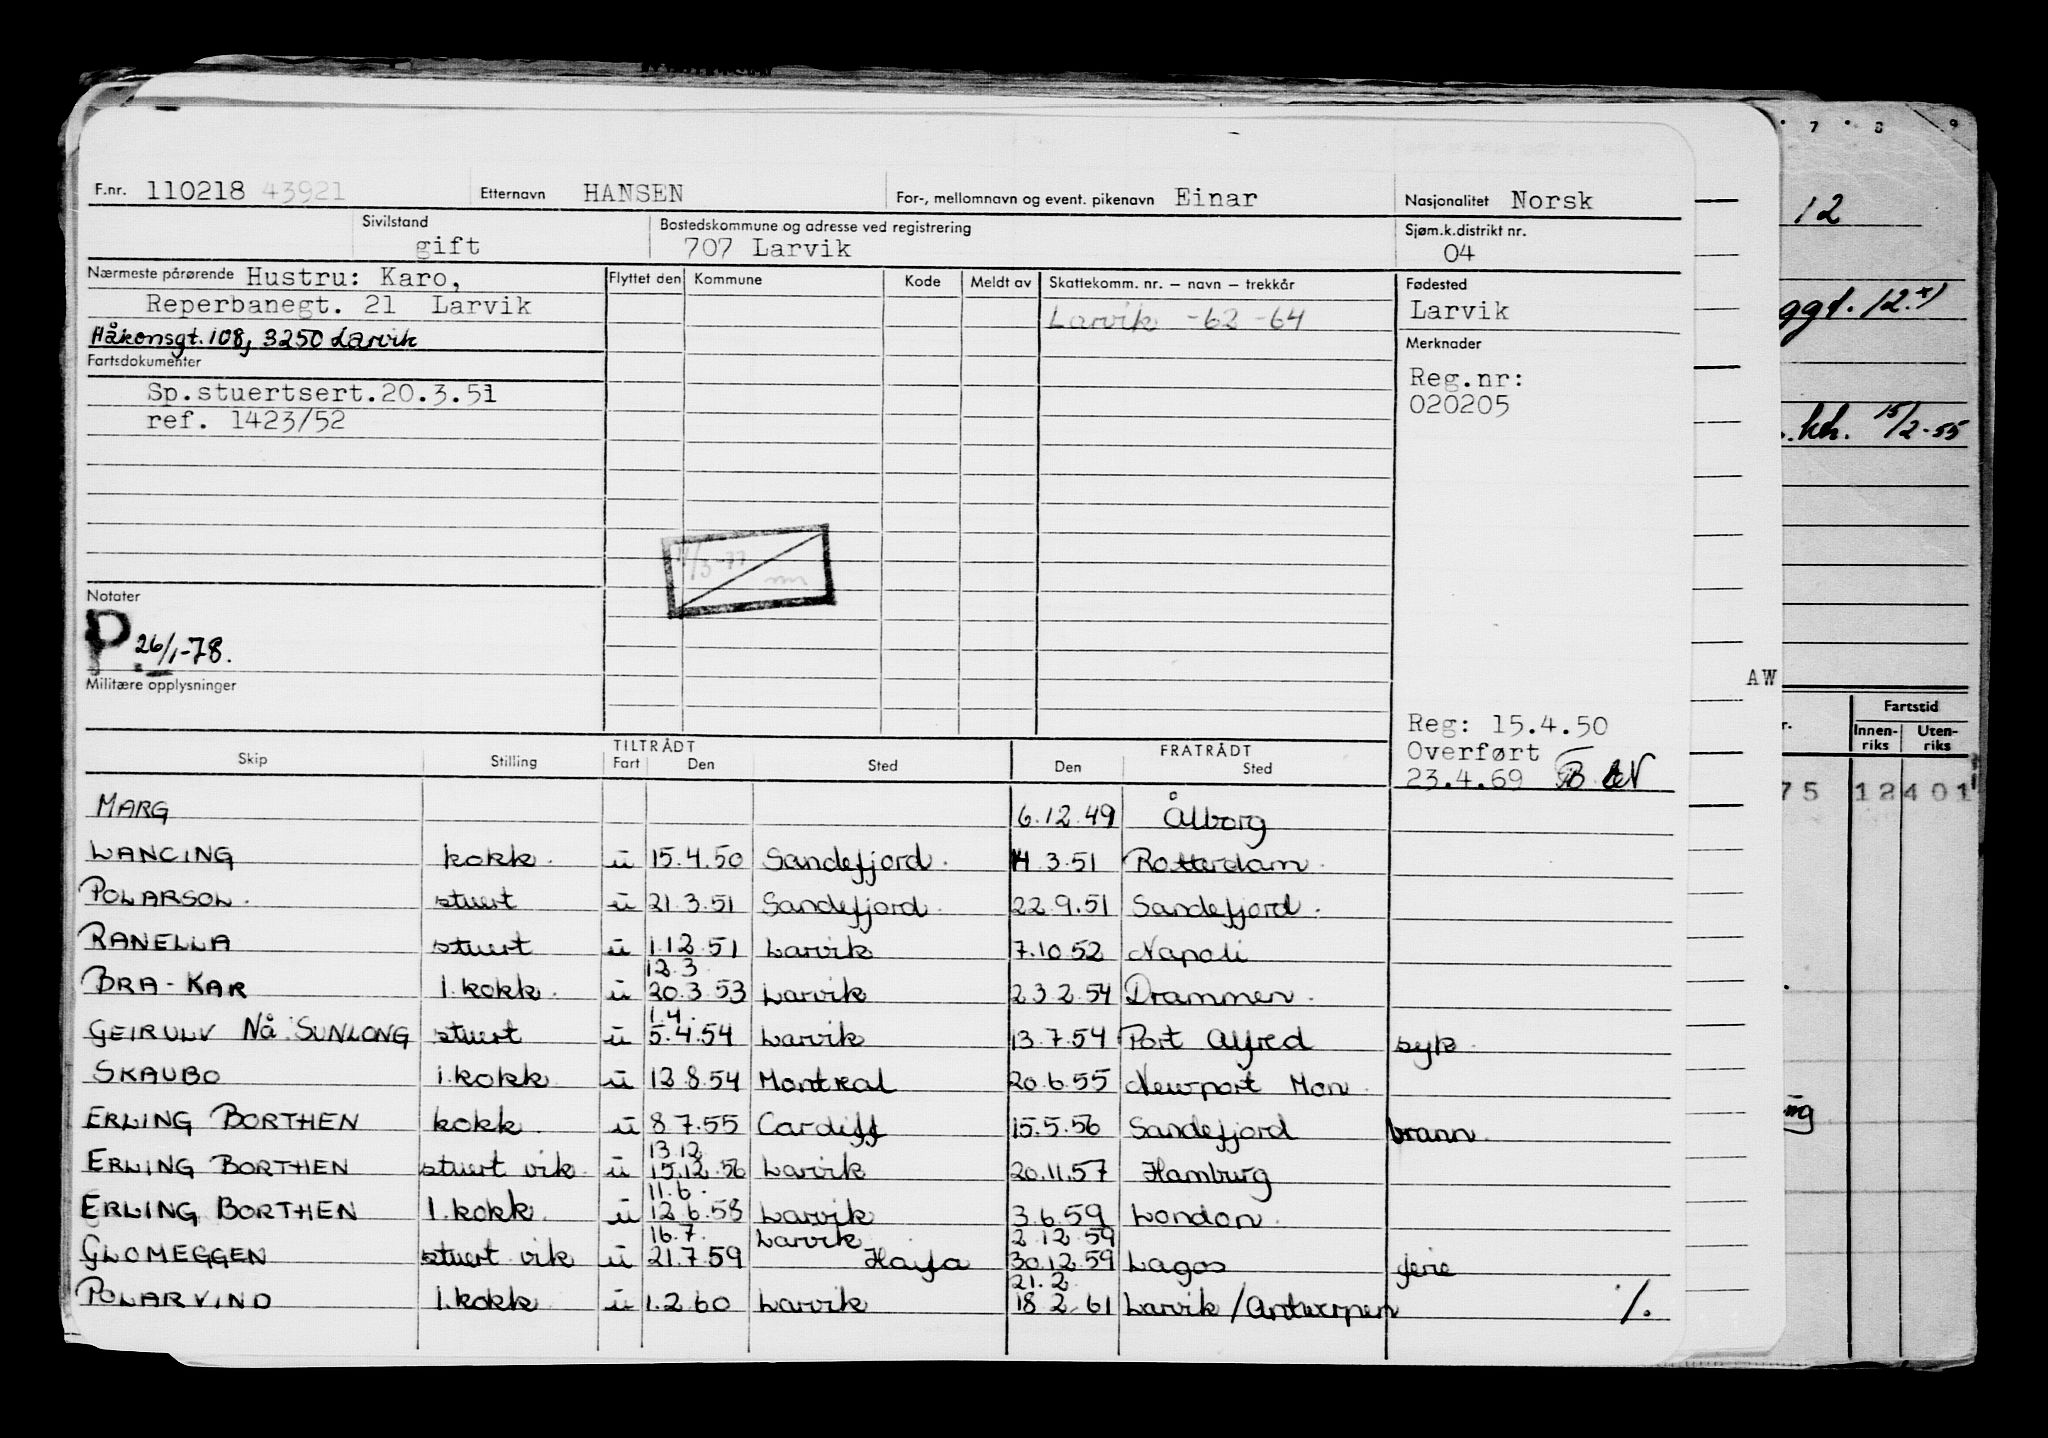 F.nr. 110218 43921 Etternavn HANSEN For-, mellomnavn og event. pikenavn Einar Nasjonalitet Norsk
Sivilstand gift Bostedskommune og adresse ved registrering 707 Larvik Sjøm.k.distrikt nr. 04
Nærmeste pårørende Hustru: Karo,
Reperbanegt. 21 Larvik
Håkonsgt. 108, 3250 Larvik
Flyttet den Kommune Kode Meldt av Skattekomm. nr. – navn – trekkår
Larvik -62 -64
Fødested
Larvik
Fartsdokumenter
Sp.stuertsert.20.3.51
ref. 1423/52
Merknader
Reg.nr:
020205
Notater
P. 26/1-78.
Militære opplysninger
Reg: 15.4.50
Overført
23.4.69
TILTRÅDT FRATRÅDT
Skip Stilling Fart Den Sted Den Sted
MARG 6.12.49 Ålborg
LANCING kokk. u 15.4.50 Sandefjord. 14 3.51 Rotterdam.
POLARSOL. stuert u 21.3.51 Sandefjord. 22.9.51 Sandefjord.
RANELLA stuert u 1.12.51 Larvik 7.10.52 Napoli
12.3
BRA-KAR 1.kokk. u 20.3.53 Larvik 23 2.54 Drammen.
1.4.
GEIRULV Nå: SUNLONG stuert u 5.4.54 Larvik 13.7.54 Port Alfred syk.
SKAUBO 1.kokk. u 12.8.54 Montreal 20.6.55 Newport Mon.
ERLING BORTHEN kokk. u 8.7.55 Cardiff 15.5.56 Sandefjord brann.
13.12
ERLING BORTHEN stuert vik. u 15.12.56 Larvik 20.11.57 Hamburg
11.6.
ERLING BORTHEN 1.kokk. u 12.6.58 Larvik 3.6.59 London.
16.7. Larvik 2.12.59
GLOMEGGEN stuert vik u 21.7.59 Haifa 30.12.59 Lagos ferie
21.2
POLARVIND 1.kokk u 1.2.60 Larvik 18 2.61 Larvik/Antwerpen /.
7 8 9
12
ggt. 12.
kh. 15/2-55
AW
Fartstid
Innen-riks Uten-riks
75 12 401